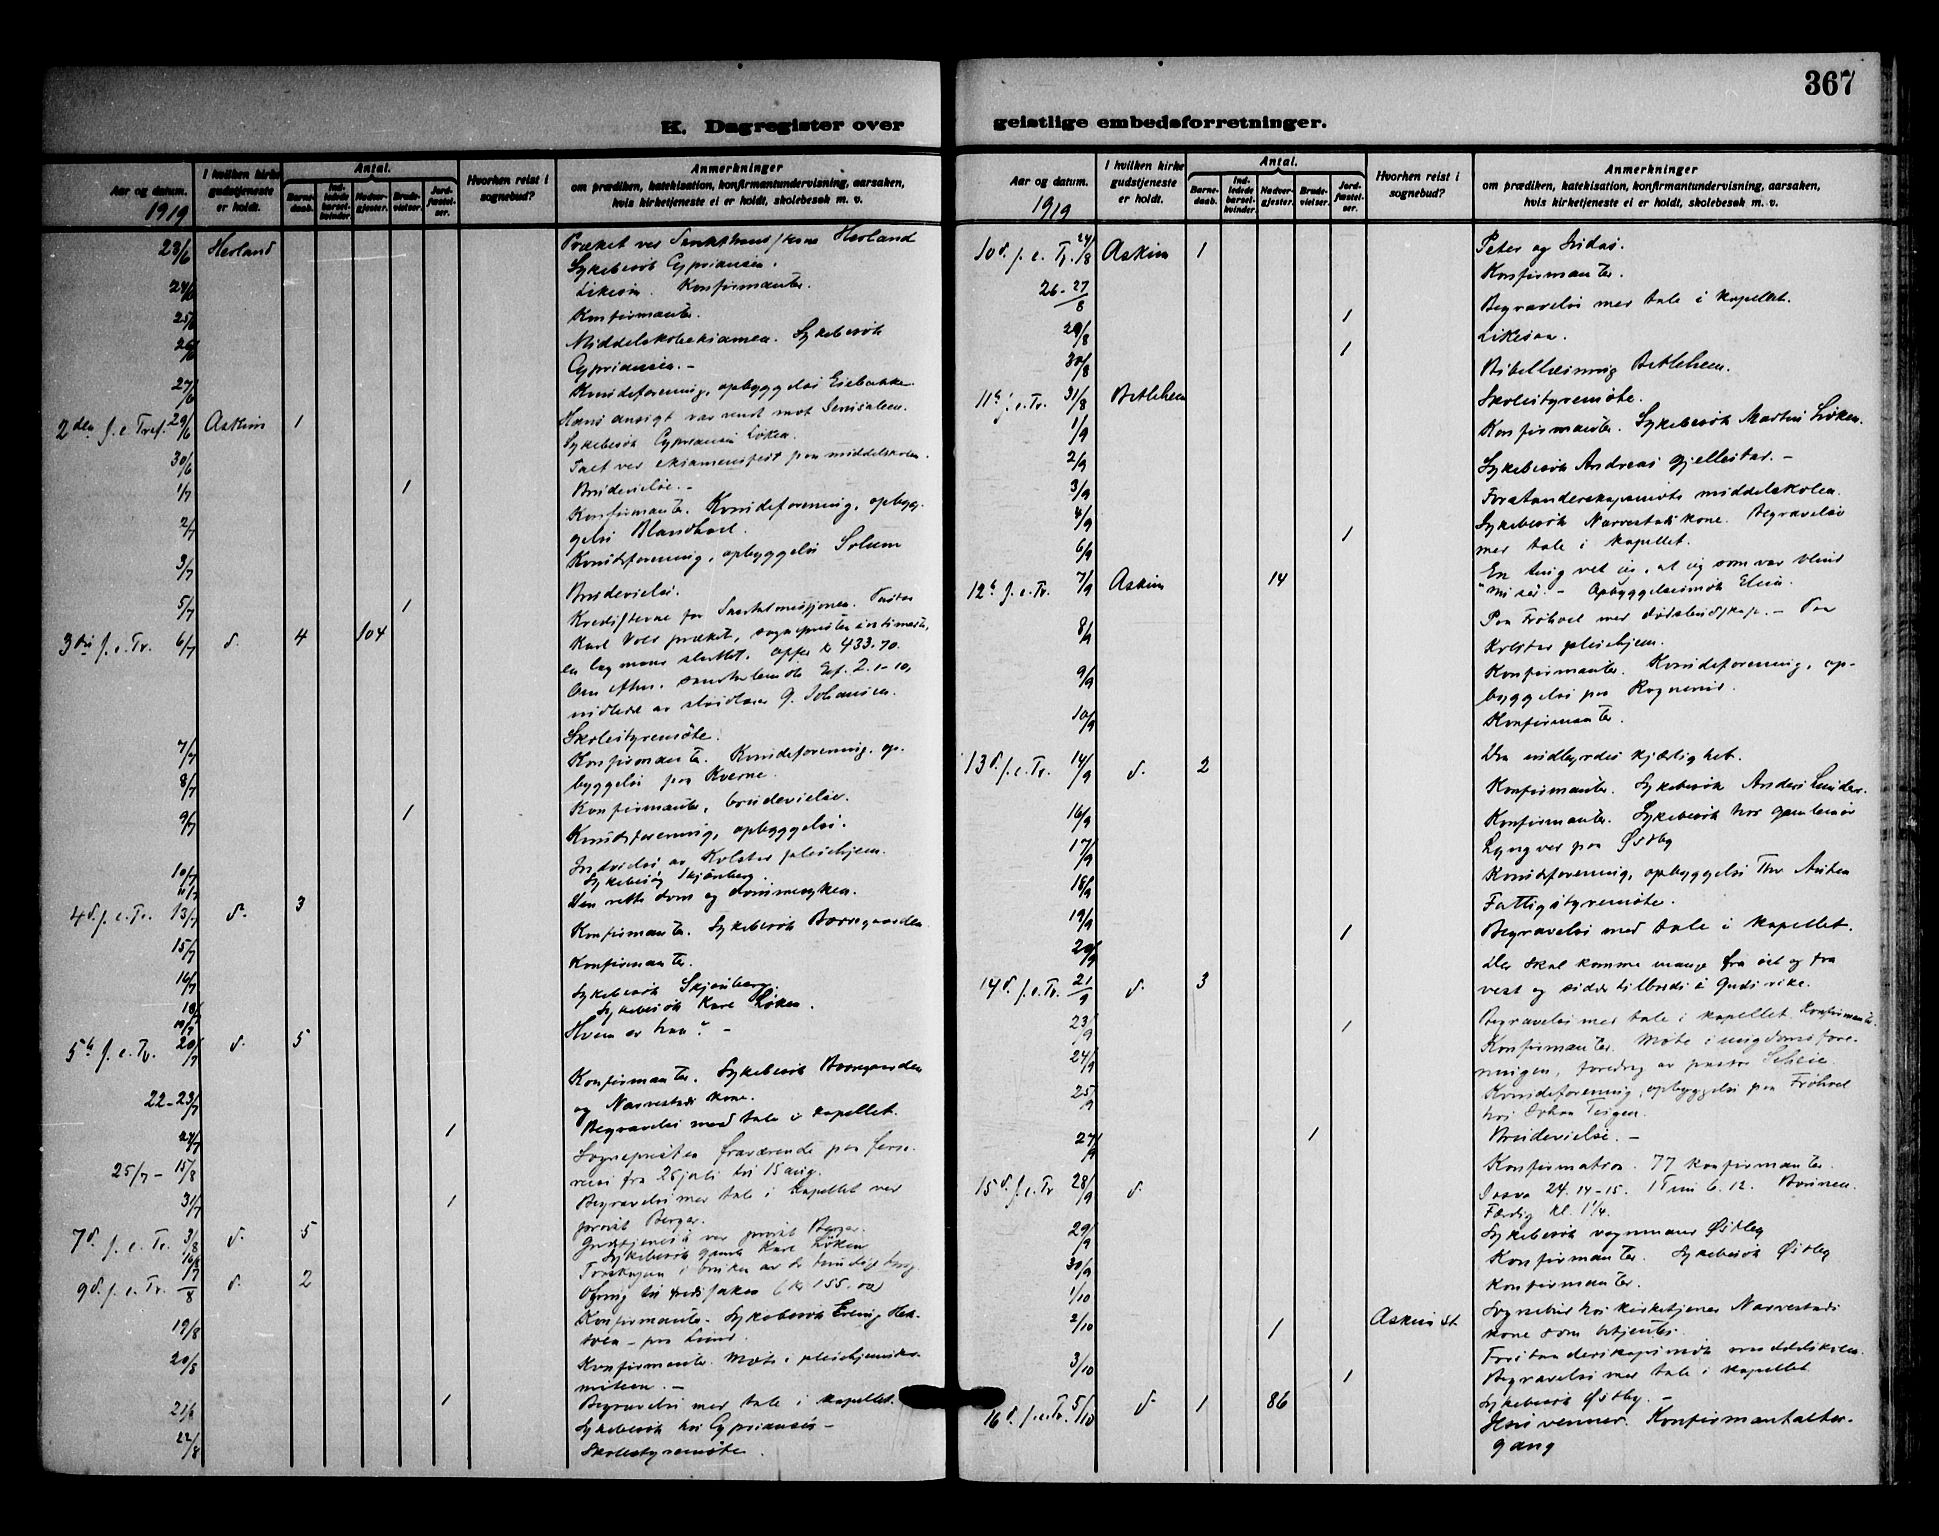 367
K. Dagregister over
geistlige embedsforretninger.
Aar og datum.
1919
I hvilken kirke gudstjeneste er holdt.
Antal.
Barnedaab.
Indledede barselkvinder.
Nadvergjester.
Brudevielser.
Jordfæstelser.
Hvorhen reist i sognebud?
Anmerkninger
om prædiken, katekisation, konfirmantundervisning, aarsaken,
hvis kirketjeneste ei er holdt, skolebesøk m. v.
23/6 Herland Præket ved Herland
Sykebesøk Cypriansen.
24/6 Likesaa. Konfirmanter.
25/6 Konfirmanter.
26/6 Middelskoleeksamen. Sykebesøk
Cypriansen.–
27/6 Kvindeforening, opbyggelse
2den s.e.Tref. 29/6 Askim 1 Hans ansigt var vendt mot Jerusalem.
Sykebesøk Cypriansen Løken.
30/6 Talt ved eksamensfest paa middelskolen.
1/7 1 Brudevielse.–
2/7 Konfirmanter. Kvindeforening, opbyg-
gelse
3/7 Kvindeforening, opbyggelse Solum
5/7 1 Brudevielse.
3die s.e.Tr. 6/7 d. 4 104 Santalmissionen. Pastor
Karl præket, sognepresten
en lægmand sluttet. Offer kr 433.70.
Om efterm. Ef. 2.1-10,
indledet av G. Johansen.
7/7 Skolestyremøte.
8/7 Konfirmanter. Kvindeforening, op-
byggelse paa Kverne.
9/7 1 Konfirmanter, brudevielse.
Kvindeforening, opbyggelse.
10/7 Indvielse av Kolstad pleiehjem.
11/7 Sykebesøg Skjønberg.
4d.s.e.Tr. 13/7 d. 3 Den rette dom og dommesyken.
15/7 Konfirmanter. Sykebesøk Borregaarden
16/7 Konfirmanter.
18/7 Sykebesøk Skjønberg.
19/7 Sykebesøk Karl Løken.
5te s.e.Tr. 20/7 d. 5 Hvem er han? –
22-23/7 Konfirmanter. Sykebesøk Borregaarden
og Narvestads kone.
24/7 1 Begravelse med tale i kapellet.
25/7 – 15/8 Sognepresten fraværende paa ferie-
reise fra 25 juli til 15 aug.
31/7 1 Begravelse med tale i kapellet ved
provst Berger.
7d. s.e.Tr. 3/8 d. 5 Gudstjeneste ved provst Berger.
16/8 Sykebesøk gamle Karl Løken
9d.s.e.Tr. 17/8 d. 2 Troskapen i bruken av de
Ofring til (kr 155.00)
19/8 Konfirmanter. Sykebesøk
paa Lund.
20/8 Konfirmanter. Møte i pleiehjemsko-
miteen.–
21/8 1 Begravelse med tale i kapellet.
Sykebesøk hos Cypriansen –
22/8 Skolestyremøte.
Aar og datum.
1919
I hvilken kirke gudstjeneste er holdt.
Antal.
Barnedaab.
Indledede barselkvinder.
Nadvergjester.
Brudevielser.
Jordfæstelser.
Hvorhen reist i sognebud?
Anmerkninger
om prædiken, katekisation, konfirmantundervisning, aarsaken,
hvis kirketjeneste ei er holdt, skolebesøk m. v.
10d. s.e.Tr. 24/8 Askim 1 Peter og Judas.
26-27/8 Konfirmanter.
1 Begravelse med tale i kapellet.
29/8 Likesaa.
30/8 1
11te s.e.Tr. 31/8 Betlehem Bibellæsning Betlehem.
1/9 Skolestyremøte.
2/9 Konfirmanter. Sykebesøk Martin Løken.
3/9 Sykebesøk Andreas Gjellestad.–
4/9 Forstanderskapsmøte middelskolen.
6/9 1 Sykebesøk Narvestads kone. Begravelse
med tale i kapellet.
12te s.e.Tr. 7/9 Askim 14 En ting vet jeg, at jeg som var blind
Opbyggelsesmøte
8/9 Paa Frøhaed med dødsbudskap.– Paa
Kolstad pleiehjem.
9/9 Konfirmanter. Kvindeforening, op-
byggelse paa Rognerud.
10/9 Konfirmanter.
13d.s.e.Tr. 14/9 d. 2 Den indbyrdes kjærlighet.
16/9 Konfirmanter. Sykebesøk Anders
17/9 Konfirmanter. Sykebesøk hos gamlemor
Lyngved paa Østby
18/9 Kvindeforening, opbyggelse Thv Austen
19/9 Fattigstyremøte.
20/9 1 Begravelse med tale i kapellet.
14d.s.e.Tr. 21/9 d. 3 Der skal komme mange fra øst og fra
vest og sidde tilbords i Guds rike.
23/9 1 Begravelse med tale i kapellet. Konfirmanter.
24/9 Konfirmanter. Møte i ungdomsfore-
ningen, foredrag av pastor Scheie.
25/9 Kvindeforening, opbyggelse paa Frøhaed
hos Johan Teigen.
27/9 1 Brudevielse.–
15d.s.e.Tr 28/9 d. Konfirmation. 77 konfirmanter.
Josva 24.14-15. 1 Tim 6.12. Bønnen.
Færdig kl. 1¼.
29/9 Sykebesøk vognmand Østby
30/9 Konfirmanter. Sykebesøk Østby
1/10 Konfirmanter.
2/10 1 Askim st. Sognebud hos kirketjener Narvestads
kone som betjentes.
3/10 Forstanderskapsmøte middelskolen.
1 Begravelse med tale i kapellet
Sykebesøk Østby.–
16d.s.e.Tr. 5/10 d. 1 86 Hans venner. Konfirmantalter-
gang